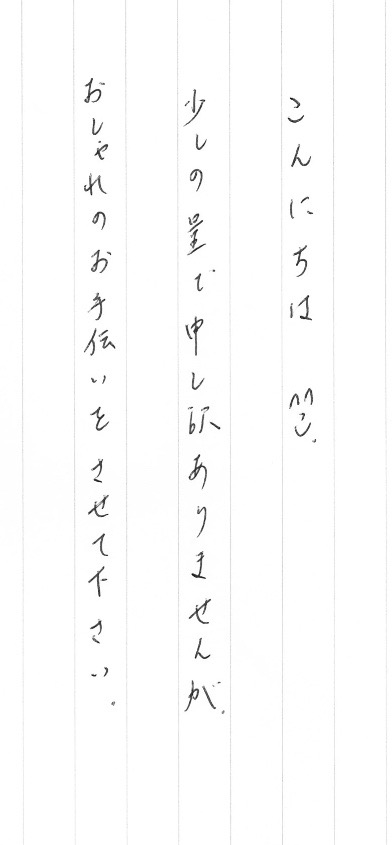 こんにちは ^^
少しの量で申し訳ありませんが.
おしゃれのお手伝いをさせて下さい.